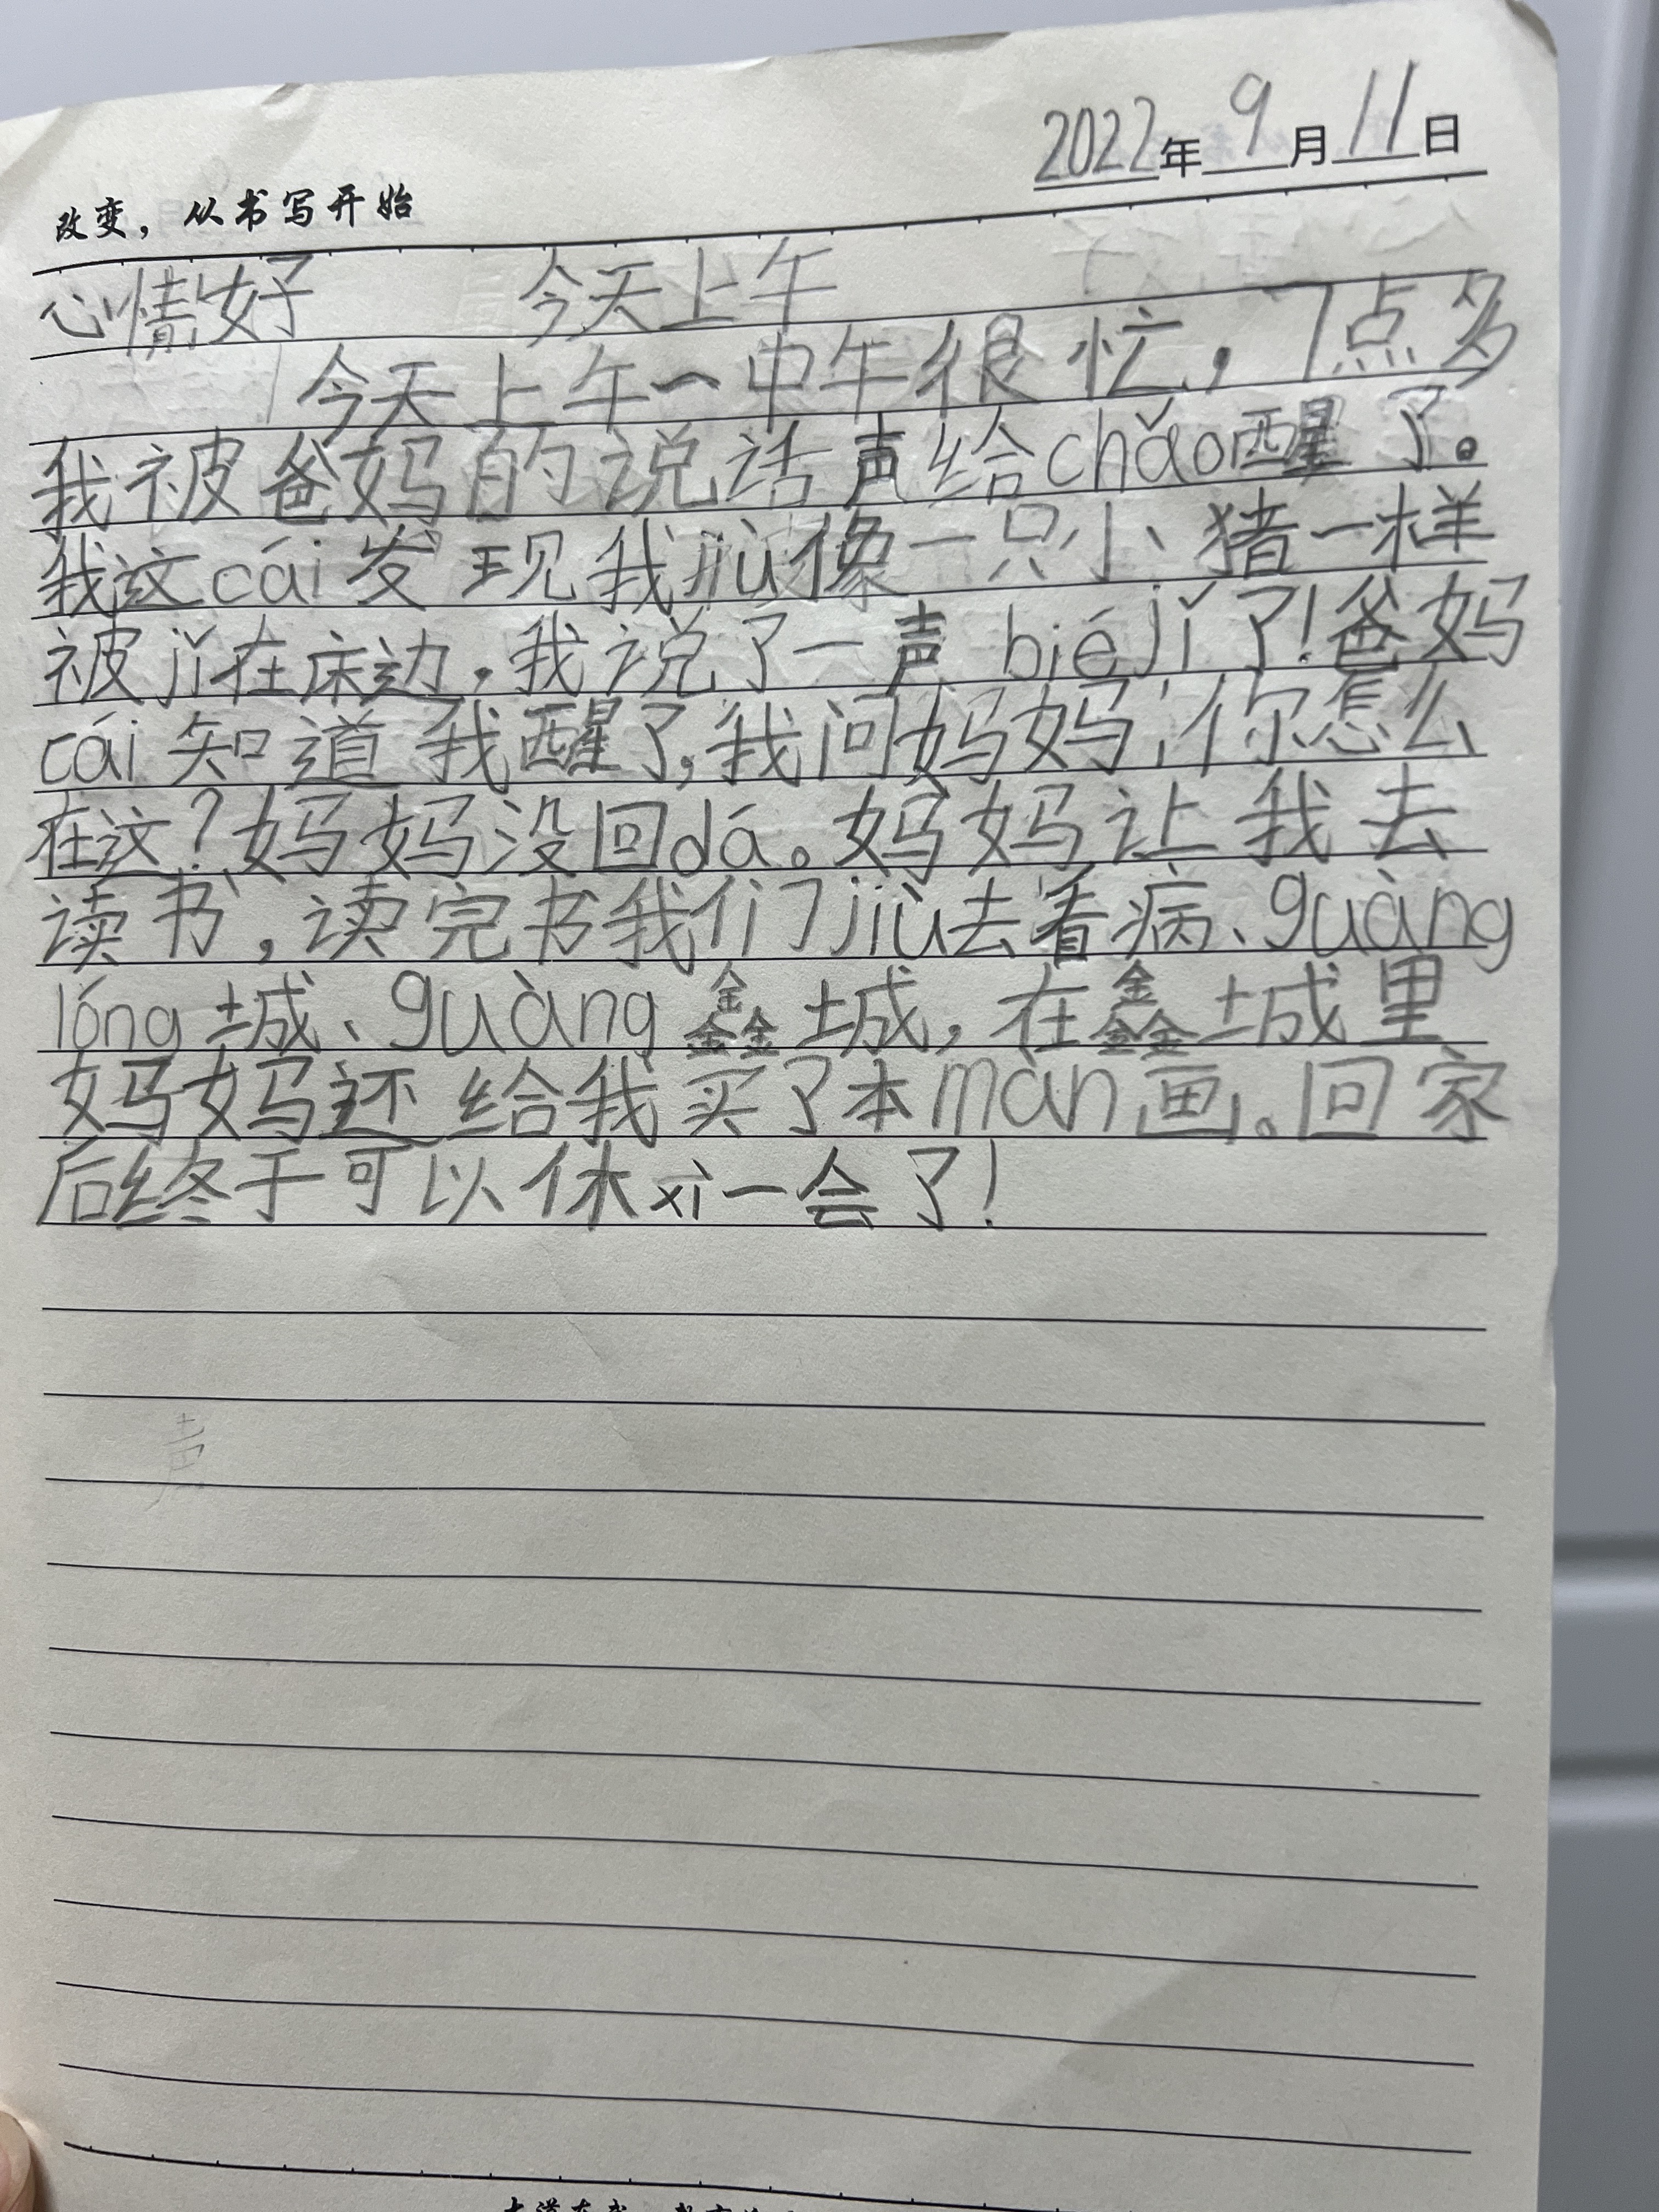 2022年9月11日
改变，从书写开始
心情好 今天上午
今天上午一中午很忙，7点多
我被爸妈的说话声给chǎo醒了。
我这cái发现我jiù像一只小猪一样
被jǐ在床边，我说了一声 biéjǐ了！爸妈
cái知道我醒了，我问妈妈，你怎么
在这？妈妈没回dá。妈妈让我去
读书，读完书我们jiù去看病、guàng
lóng城、guàng鑫城，在鑫城里
妈妈还给我买了本màn画。回家
后终于可以休xì一会了！
声